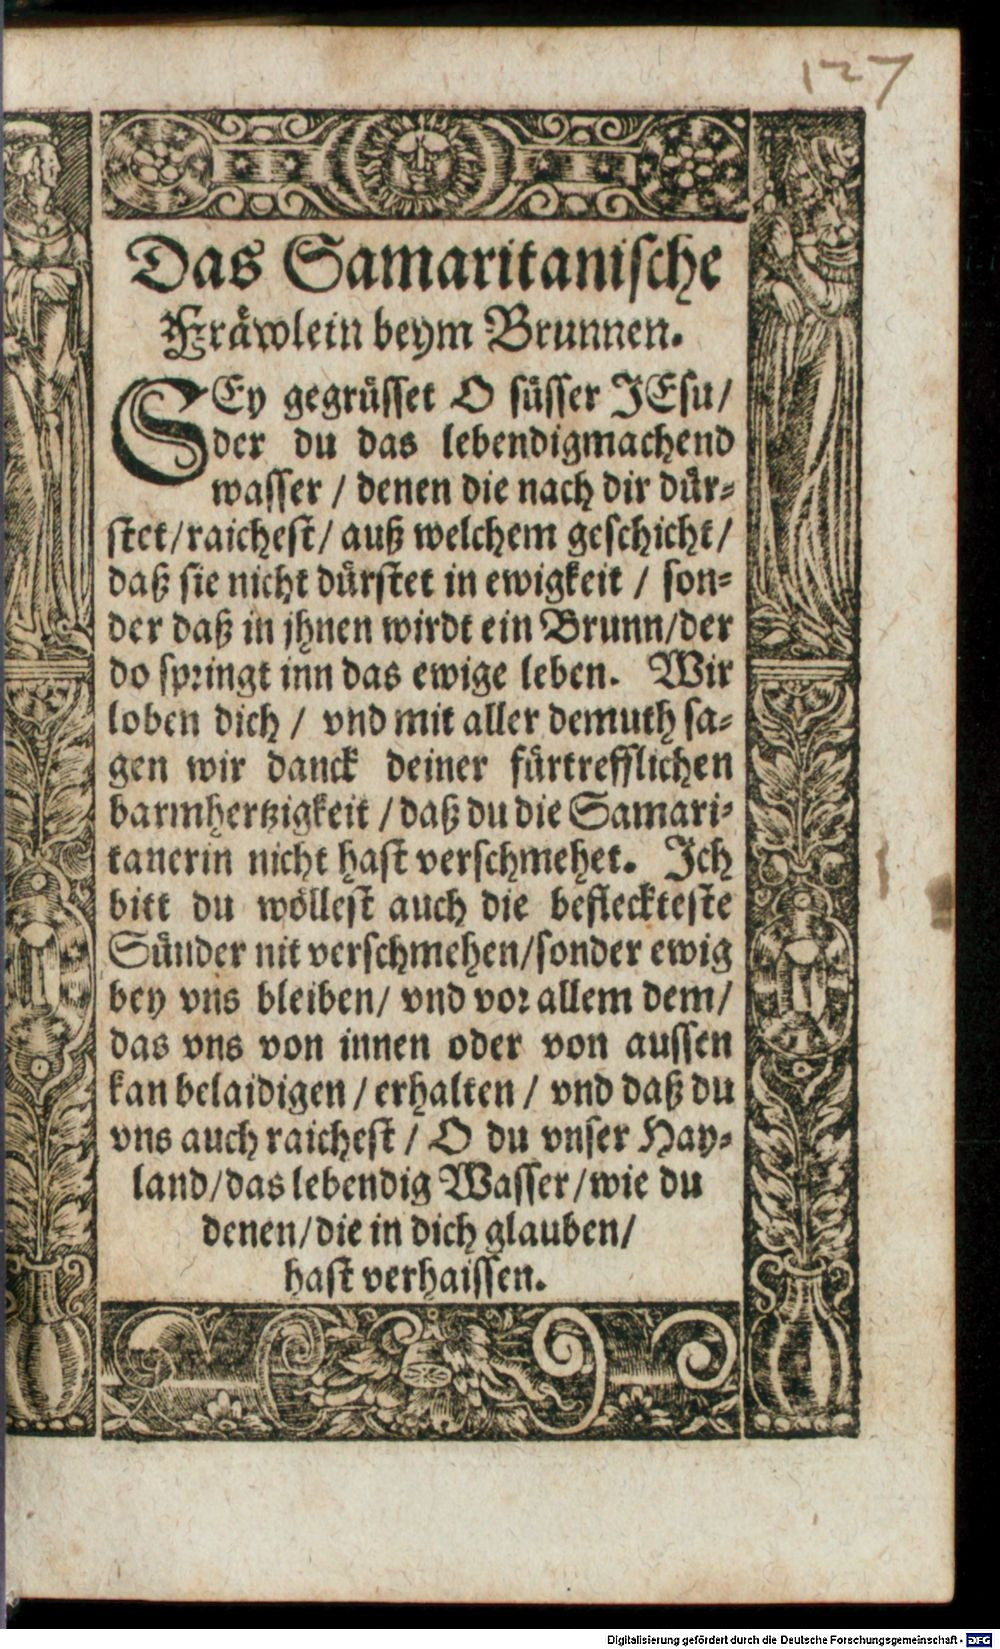 127
Das Samaritanische
Fräwlein beym Brunnen.
SEy gegrüsset O süsser JEsu/
der du das lebendigmachend
wasser / denen die nach dir dür-
stet/raichest/ auß welchem geschicht/
daß sie nicht dürstet in ewigkeit / son-
der daß in jhnen wirdt ein Brunn/der
do springt inn das ewige leben. Wir
loben dich / vnd mit aller demuth sa-
gen wir danck deiner fürtrefflichen
barmhertzigkeit / daß du die Samari-
tanerin nicht hast verschmehet. Jch
bitt du wöllest auch die befleckteste
Sünder nit verschmehen/sonder ewig
bey vns bleiben/ vnd vor allem dem/
das vns von innen oder von aussen
kan belaidigen / erhalten / vnd daß du
vns auch raichest / O du vnser Hay-
land/das lebendig Wasser/wie du
denen/die in dich glauben/
hast verhaissen.
Digitalisierung gefördert durch die Deutsche Forschungsgemeinschaft - DFG